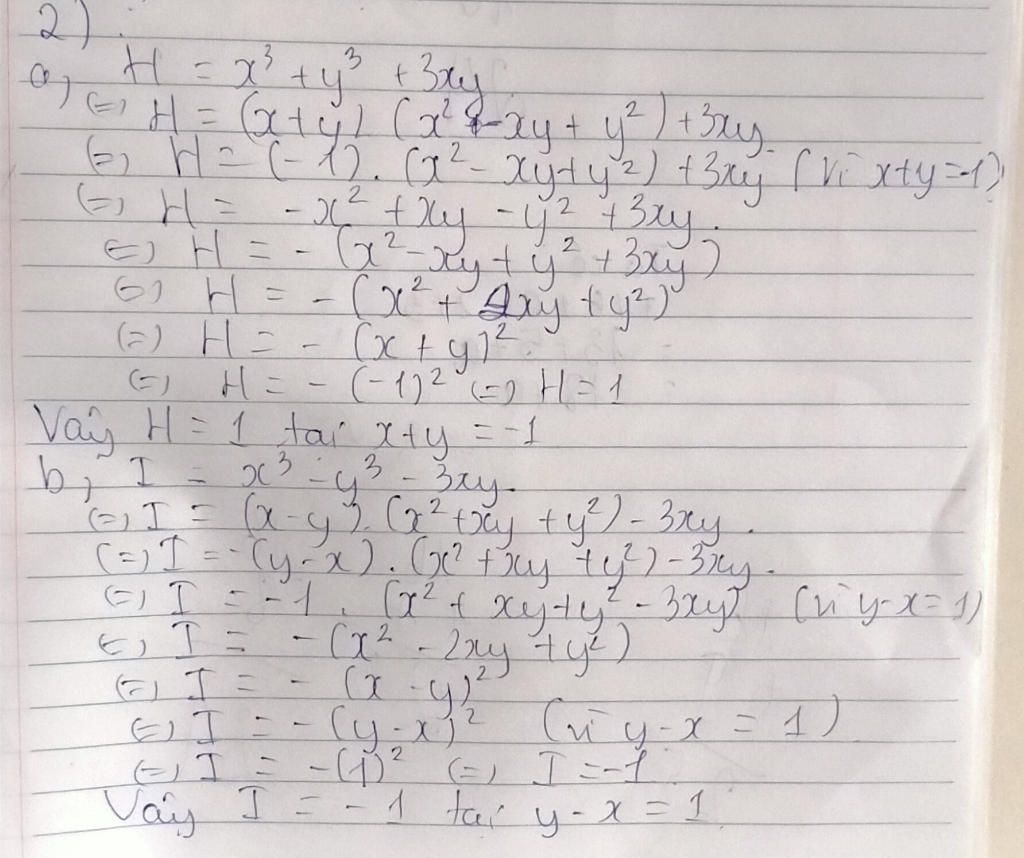 2)
a, H = x³ + y³ + 3xy
(=) H = (x+y). (x² - xy + y²) + 3xy.
(=) H = (-1). (x² - xy + y²) + 3xy (vì x+y=-1)
(=) H = - x² + xy - y² + 3xy.
(=) H = - (x² - xy + y² + 3xy)
(=) H = - (x² + 2xy + y²)
(=) H = - (x + y)².
(=) H = - (-1)² (=) H = 1
Vậy H = 1 tại x+y = -1
b, I = x³ - y³ - 3xy.
(=) I = (x-y). (x² + xy + y²) - 3xy.
(=) I = -(y-x). (x² + xy + y²) - 3xy.
(=) I = -1. (x² + xy + y² - 3xy) (vì y-x = 1)
(=) I = - (x² - 2xy + y²)
(=) I = - (x - y)²
(=) I = - (y-x)² (vì y-x = 1)
(=) I = -(1)² (=) I = -1
Vậy I = - 1 tại y - x = 1